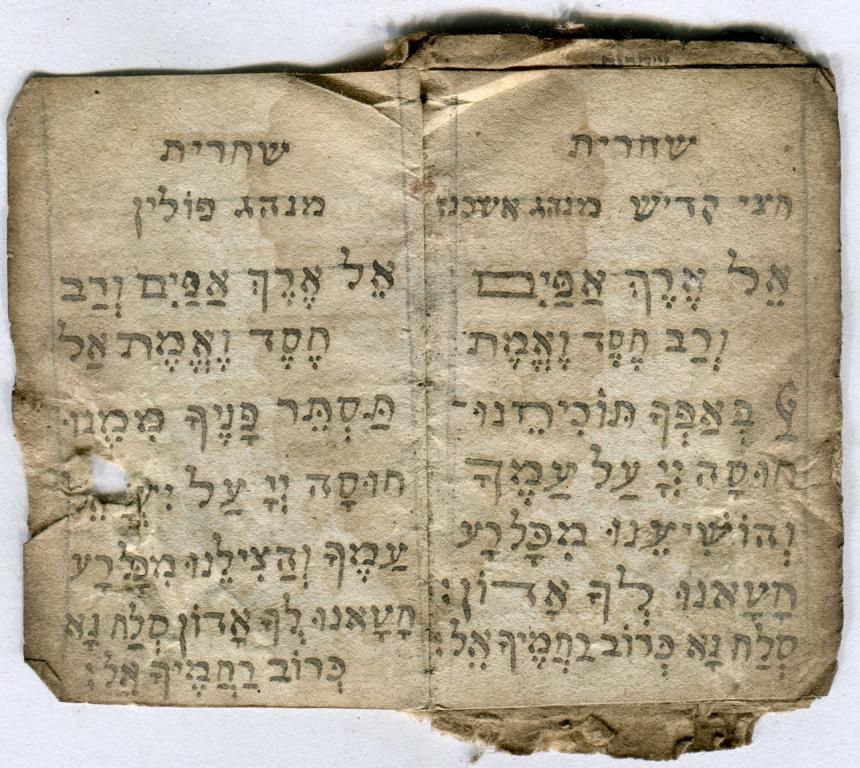 שחרית
חצי קדיש מנהג אשכנז
אֵל אֶרֶךְ אַפַּיִם
וְרַב חֶסֶד וֶאֱמֶת
בְּאַפְּךָ תּוֹכִיחֵנוּ
חוּסָה יְיָ עַל עַמֶּךָ
וְהוֹשִׁיעֵנוּ מִכָּל רָע
חָטָאנוּ לְךָ אָדוֹן:
סְלַח נָא כְּרוֹב רַחֲמֶיךָ אֵל:
שחרית
מנהג פולין
אֵל אֶרֶךְ אַפַּיִם וְרַב
חֶסֶד וֶאֱמֶת אַל
תַּסְתֵּר פָּנֶיךָ מִמֶּנוּ
חוּסָה יְיָ עַל
עַמֶּךָ וְהַצִילֵנוּ מִכָּל רָע
חָטָאנוּ לְךָ אָדוֹן סְלַח נָא
כְּרוֹב רַחֲמֶיךָ אֵל: